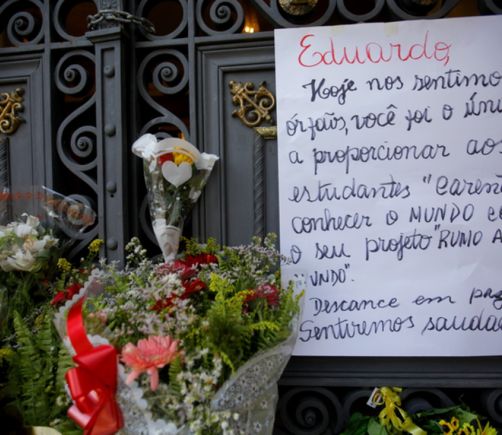 Eduardo,
Hoje nos sentimo
órfãis, você foi o úni
a proporcionar aos
estudantes "caren
conhecer o MUNDO c
o seu projeto "RUMO A
UNDO".
Descance em pa
Sentiremos sauda